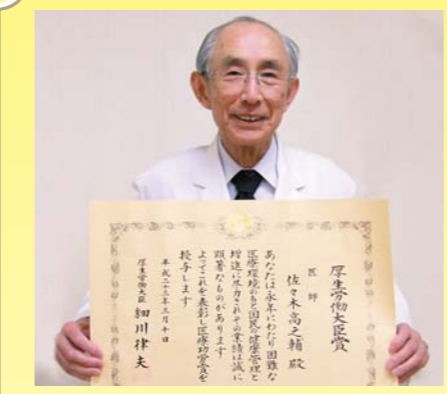 厚生労働大臣賞
医師
佐々木高之輔 殿
あなたは永年にわたり困難な
医療環境のもと国民の健康管理と
増進に尽力されその業績は誠に
顕著なものがあります
よってこれを表彰し医療功労賞を
授与します
平成二十三年三月十日
厚生労働大臣 細川律夫